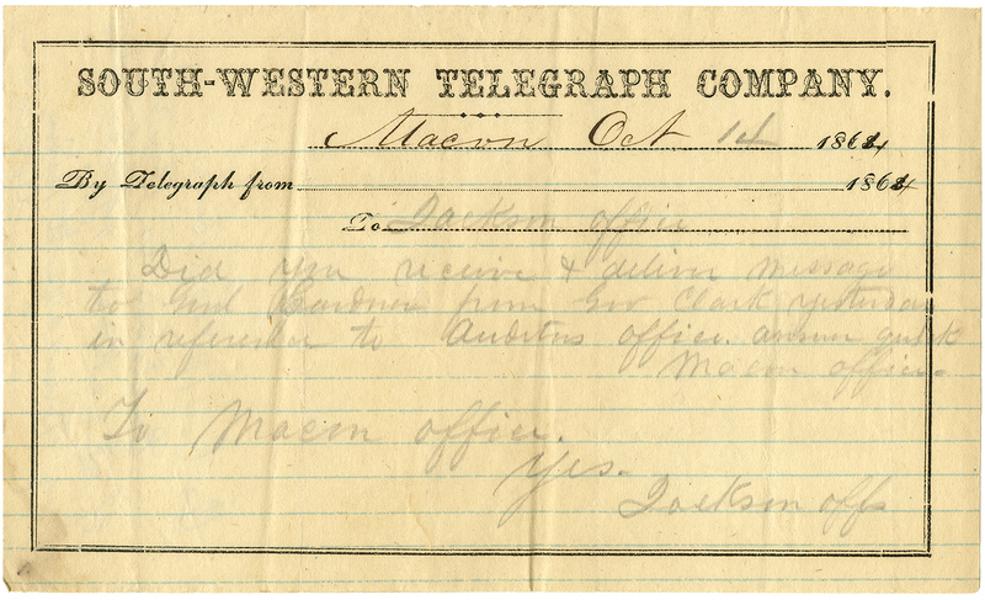 SOUTH-WESTERN TELEGRAPH COMPANY.
Macon Oct 14 1864
By Telegraph from 1864
To Jackson office
Did you receive & deliver message
to Genl Gardner from Gov Clark yesterday
in reference to Auditors office. answer quick
Macon office.
To Macon office.
Yes.
Jackson offs